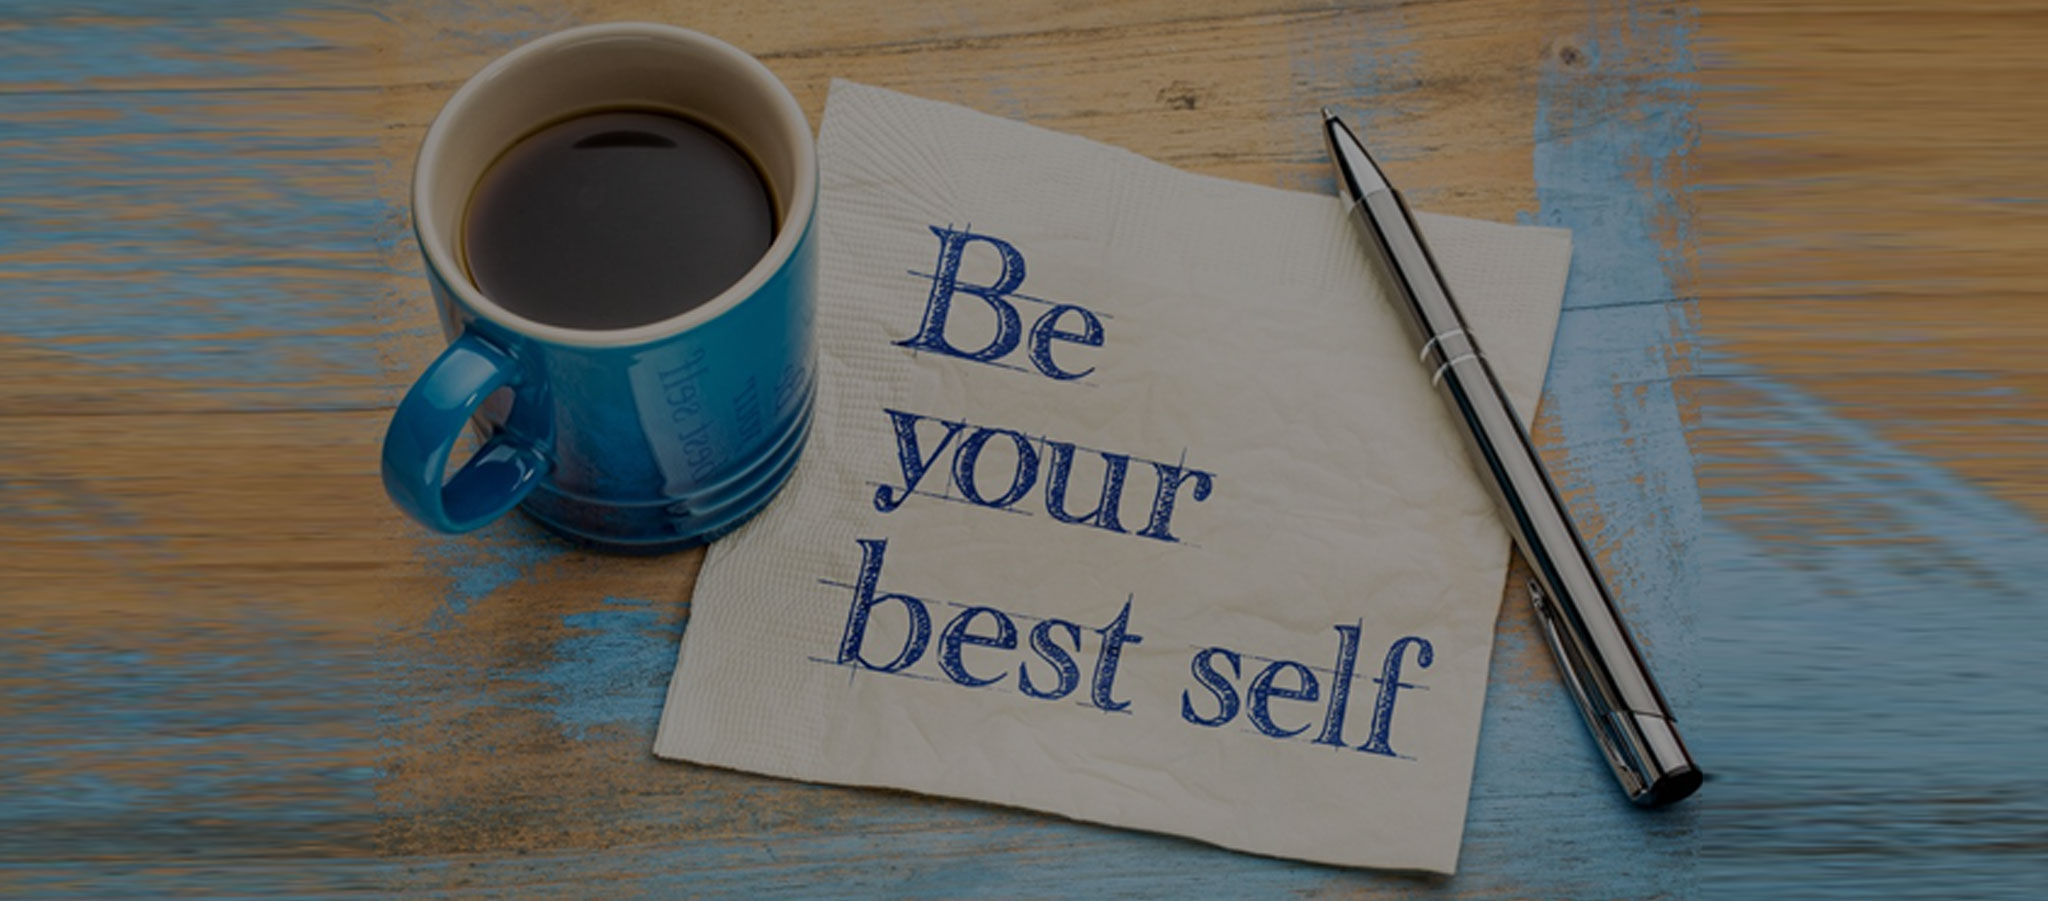 Be
your
best self